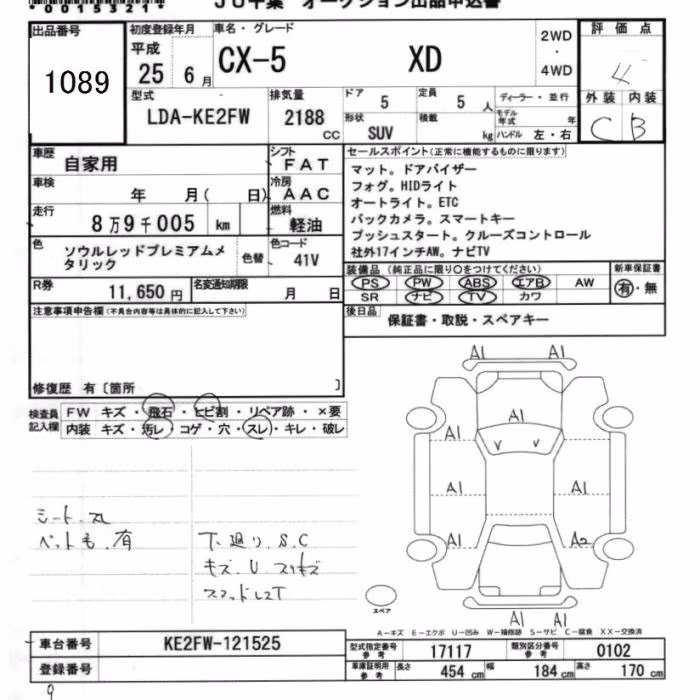 *00153210*
JU千葉 オークション出品申込書
出品番号
1089
初度登録年月
平成
25 6月
車名・グレード
CX-5 XD
2WD
・
4WD
評価点
4
外装 内装
C B
型式
LDA-KE2FW
排気量
2188
CC
ドア
5
定員
5 人
ディーラー・並行
モデル年式 年
形状
SUV
積載
kg
ハンドル 左・右
車歴
自家用
シフト
FAT
車検
年 月( 日)
冷房
AAC
走行
8万9千005 km
燃料
軽油
色
ソウルレッドプレミアムメ
タリック
色替
色コード
41V
R券
11,650円
名変通知期限
月 日
セールスポイント(正常に機能するものに限ります)
マット。ドアバイザー
フォグ。HIDライト
オートライト。ETC
バックカメラ。スマートキー
プッシュスタート。クルーズコントロール
社外17インチAW。ナビTV
装備品(純正品に限り○をつけてください)
新車保証書
PS PW ABS エアB AW
SR ナビ TV カワ
有・無
後日品
保証書・取説・スペアキー
注意事項申告欄(不具合内容等は具体的に記入して下さい)
修復歴 有〔箇所 〕
検査員
記入欄
FW キズ・飛石・ヒビ割・リペア跡・×要
内装 キズ・汚レ・コゲ・穴・スレ・キレ・破レ
シート.スレ
ペット毛.有
下廻り.S.C
キズ.U.スリキズ
A1 A1
A1
A1
V V
A1 A1
A1 A2
A1 A1
スペア
A－キズ E－エクボ U－凹み W－補修跡 S－サビ C－腐食 XX－交換済
車台番号
KE2FW-121525
登録番号
型式指定番号
参考
17117
類別区分番号
参考
0102
車庫証明用
参考
長さ
454 cm
幅
184 cm
高さ
170 cm
9